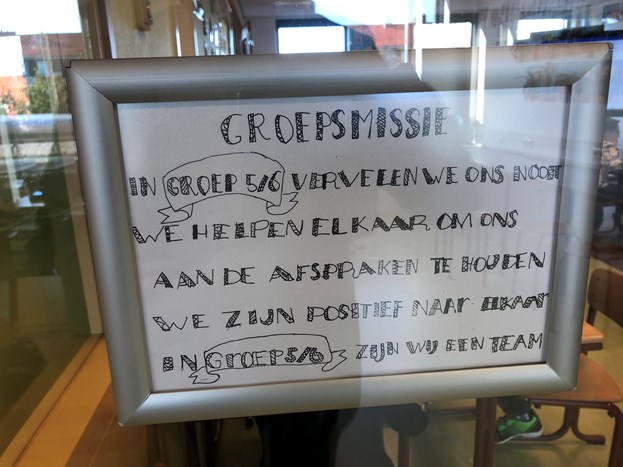 GROEPSMISSIE
IN GROEP 5/6 VERVELEN WE ONS NOOIT
WE HELPEN ELKAAR OM ONS
AAN DE AFSPRAKEN TE HOUDEN
WE ZIJN POSITIEF NAAR ELKAAR
IN GROEP 5/6 ZIJN WIJ EEN TEAM